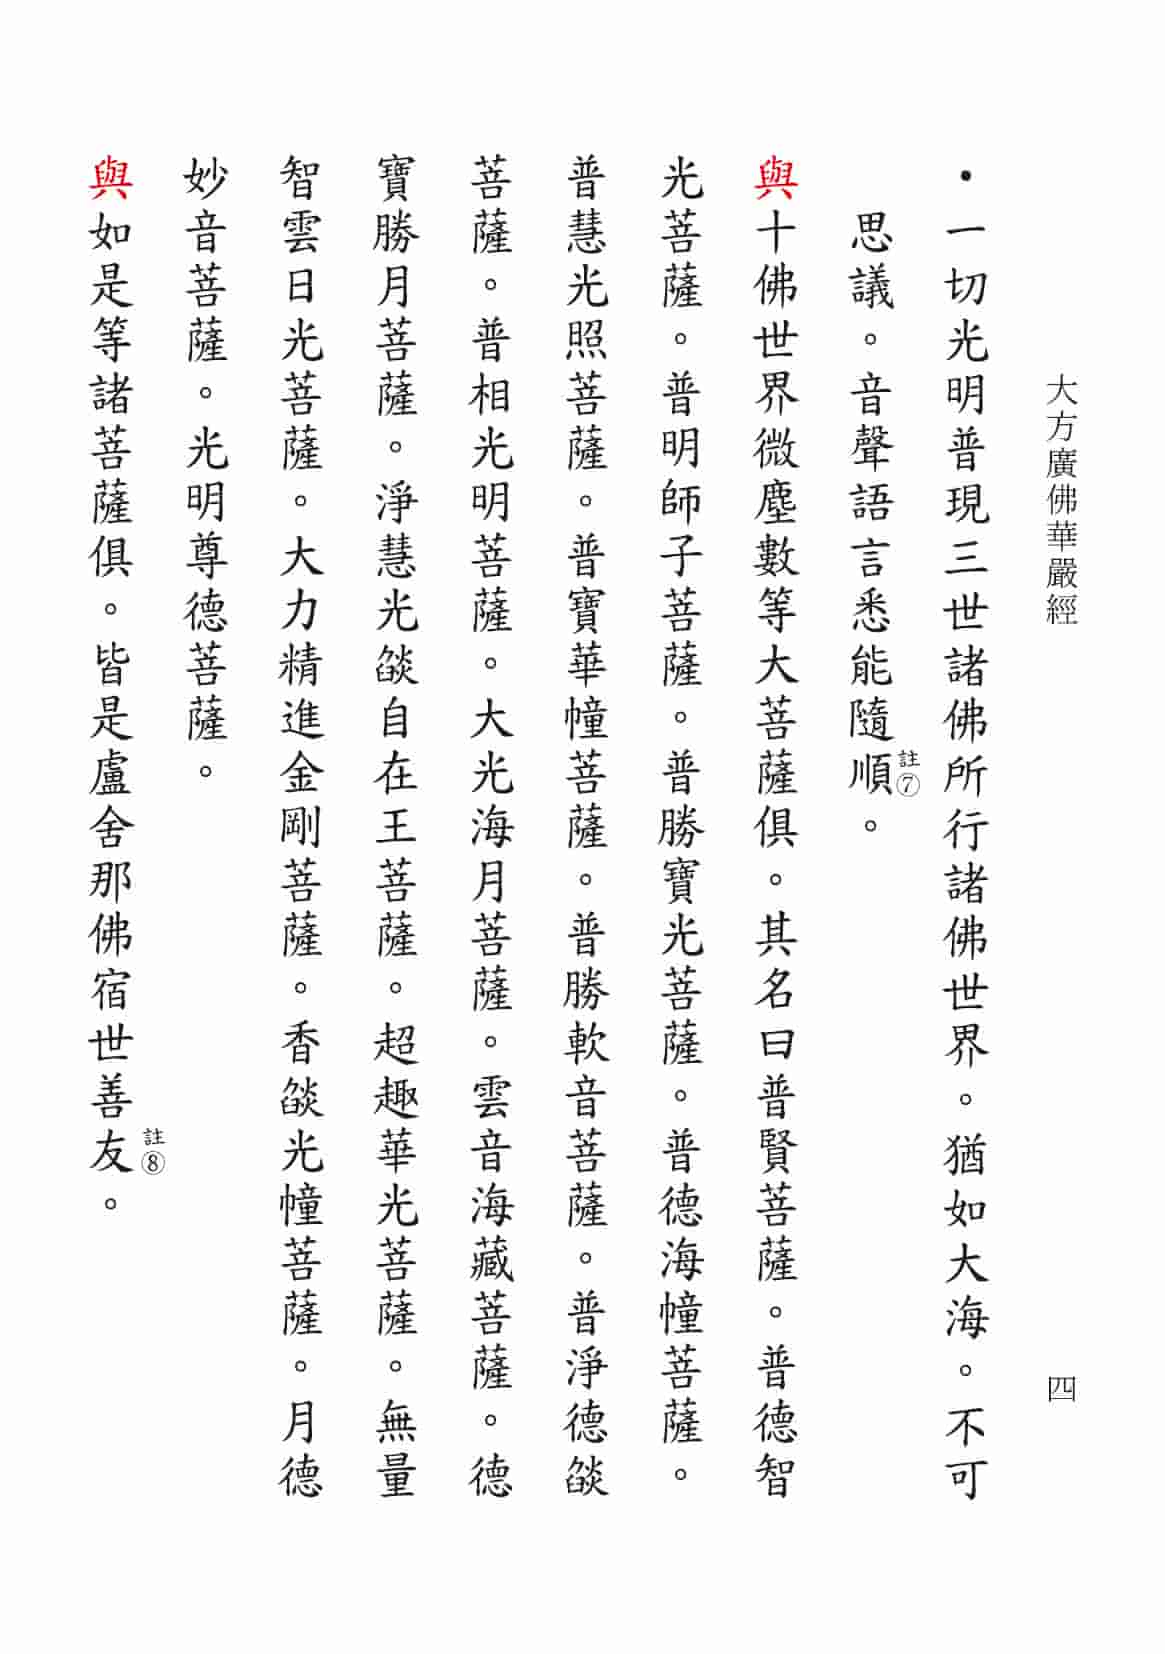 大方廣佛華嚴經
四
•一切光明普現三世諸佛所行諸佛世界。猶如大海。不可
思議。音聲語言悉能隨順註⑦。
與十佛世界微塵數等大菩薩俱。其名曰普賢菩薩。普德智
光菩薩。普明師子菩薩。普勝寶光菩薩。普德海幢菩薩。
普慧光照菩薩。普寶華幢菩薩。普勝軟音菩薩。普淨德燄
菩薩。普相光明菩薩。大光海月菩薩。雲音海藏菩薩。德
寶勝月菩薩。淨慧光燄自在王菩薩。超趣華光菩薩。無量
智雲日光菩薩。大力精進金剛菩薩。香燄光幢菩薩。月德
妙音菩薩。光明尊德菩薩。
與如是等諸菩薩俱。皆是盧舍那佛宿世善友註⑧。